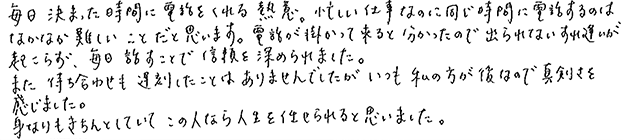 毎日 決まった時間に電話をくれる 熱意。忙しい仕事なのに同じ時間に電話するのは
なかなか難しいことだと思います。電話が掛かって来ると分かったので出られないすれ違いが
起こらず、毎日話すことで信頼を深められました。
また 待ち合わせも遅刻したことはありませんでしたが いつも私の方が後なので真剣さを
感じました。
身なりもきちんとしていて この人なら人生を任せられると思いました。